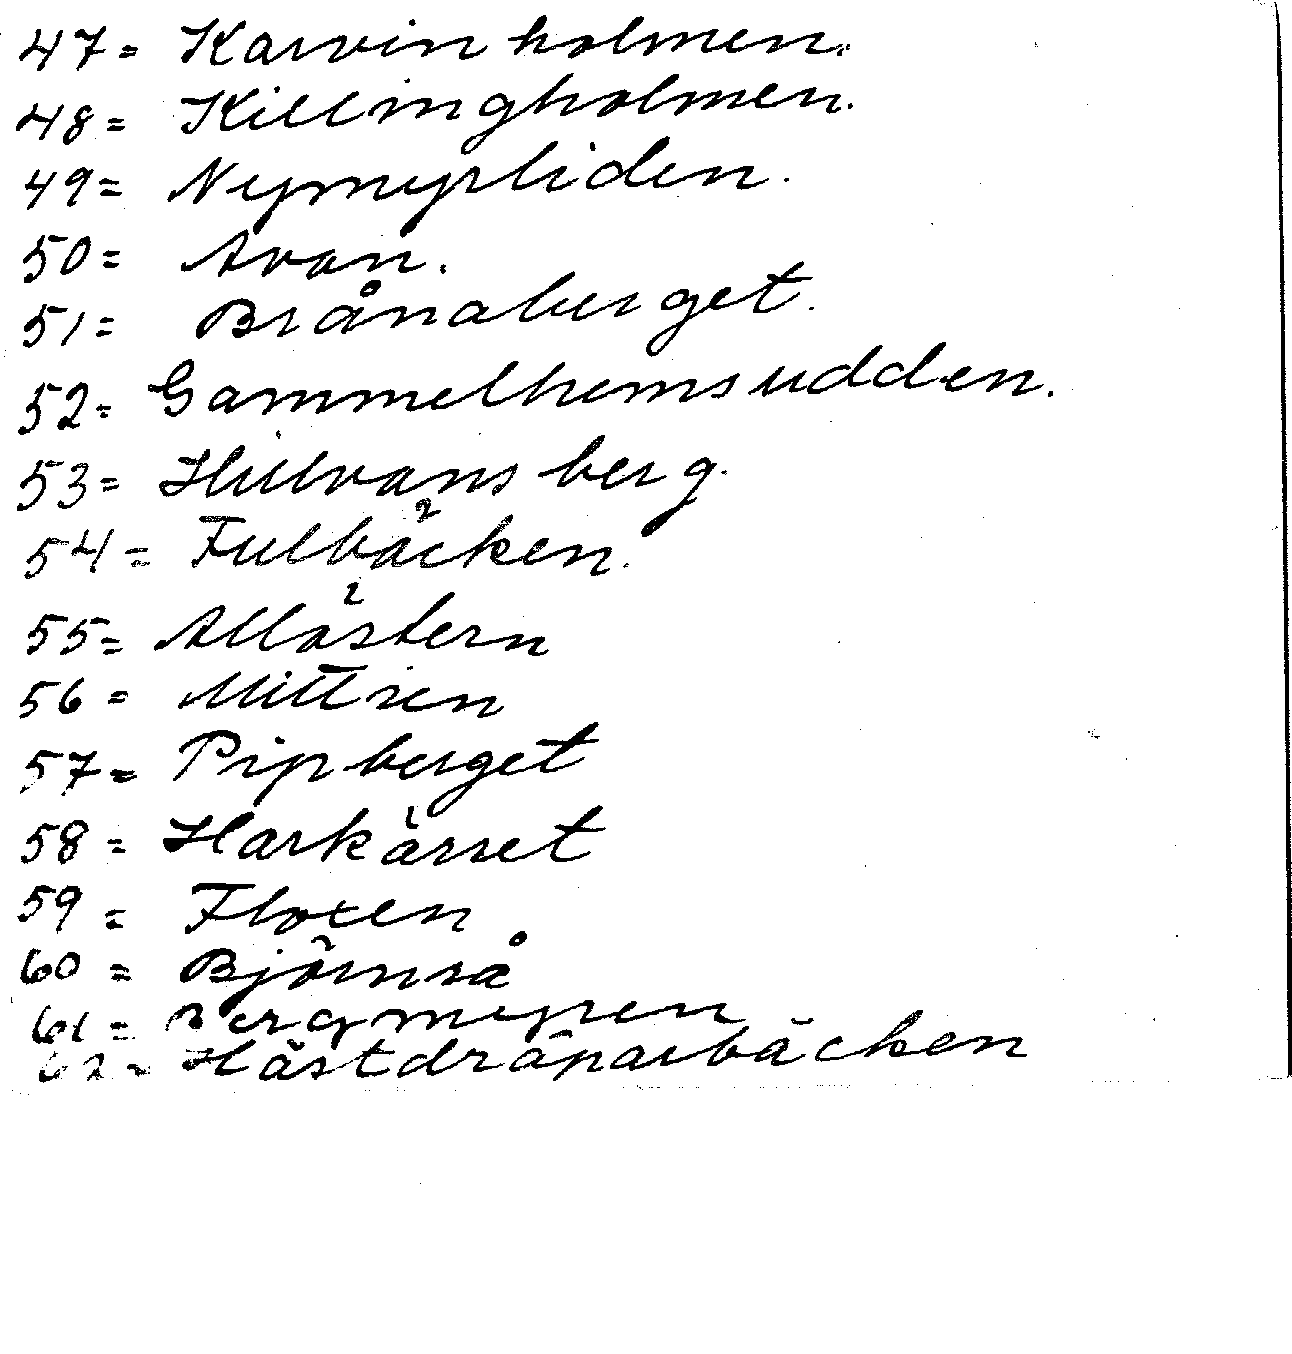 47= Karvinholmen.
48= Killingholmen.
49= Nymyrliden.
50= Avan.
51= Brånaberget.
52= Gammelhemsudden.
53= Hillvansberg.
54= Fulbäcken.
55= Allästern
56= Mittren
57= Pipberget
58= Harkärret
59= Floxen
60= Björnså
61= Bergmyren
62= Hästdräparbäcken